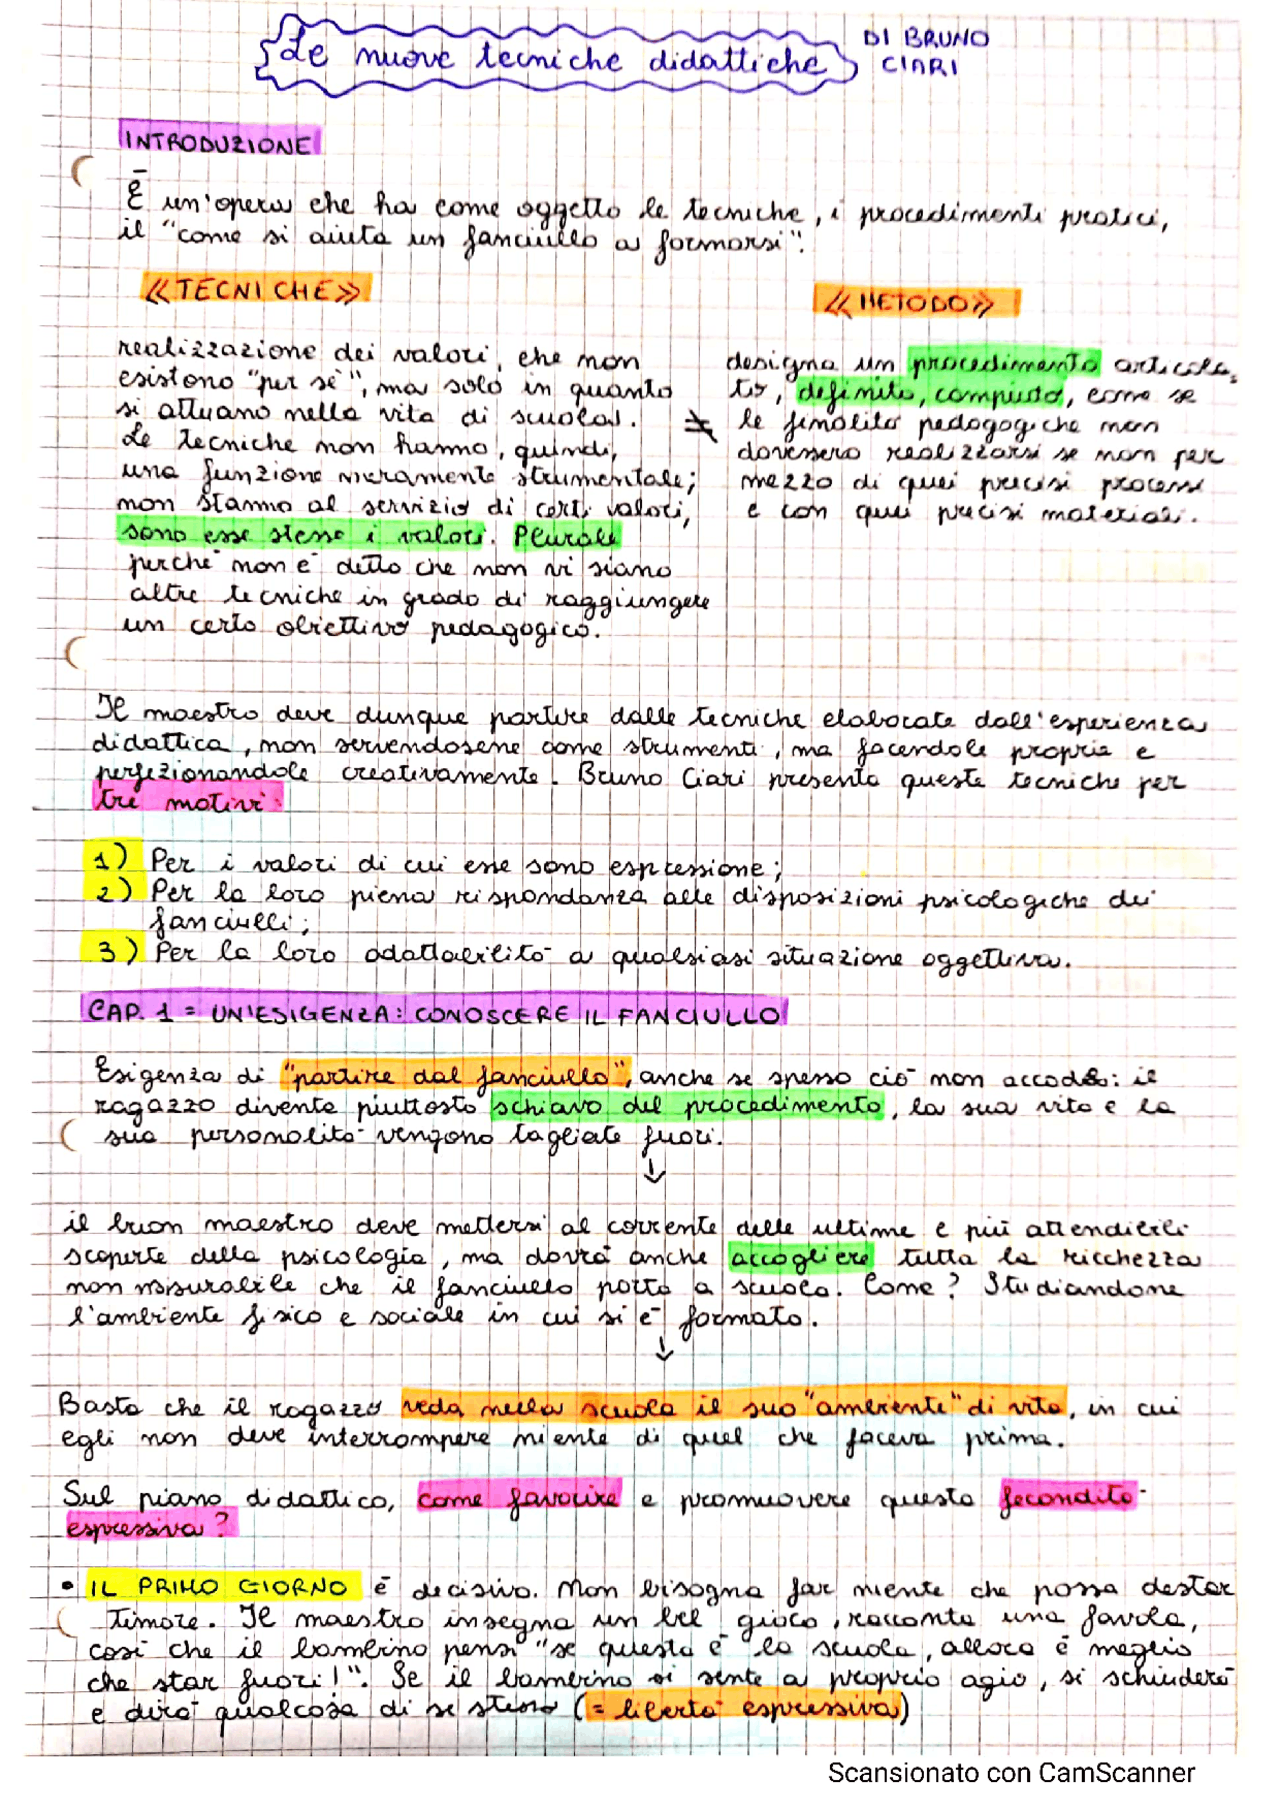 Le nuove tecniche didattiche DI BRUNO CIARI
INTRODUZIONE
È un'opera che ha come oggetto le tecniche, i procedimenti pratici,
il "come si aiuta un fanciullo a formarsi".
«TECNICHE»
realizzazione dei valori, che non
esistono "per sè", ma solo in quanto
si attuano nella vita di scuola.
Le tecniche non hanno, quindi,
una funzione meramente strumentale;
non stanno al servizio di certi valori,
sono esse stesse i valori. Plurale
perché non è detto che non vi siano
altre tecniche in grado di raggiungere
un certo obiettivo pedagogico.
≠
«METODO»
designa un procedimento articola-
to, definito, compiuto, come se
le finalità pedagogiche non
dovessero realizzarsi se non per
mezzo di quei precisi processi
e con quei precisi materiali.
Il maestro deve dunque partire dalle tecniche elaborate dall'esperienza
didattica, non servendosene come strumenti, ma facendole proprie e
perfezionandole creativamente. Bruno Ciari presenta queste tecniche per
tre motivi:
1) Per i valori di cui esse sono espressione;
2) Per la loro piena rispondanza alle disposizioni psicologiche dei
fanciulli;
3) Per la loro adattabilità a qualsiasi situazione oggettiva.
CAP. 1 = UN'ESIGENZA: CONOSCERE IL FANCIULLO
Esigenza di "partire dal fanciullo", anche se spesso ciò non accade: il
ragazzo diventa piuttosto schiavo del procedimento, la sua vita e la
sua personalità vengono tagliate fuori.
↓
il buon maestro deve mettersi al corrente delle ultime e più attendibili
scoperte della psicologia, ma dovrà anche accogliere tutta la ricchezza
non misurabile che il fanciullo porta a scuola. Come? Studiandone
l'ambiente fisico e sociale in cui si è formato.
↓
Basta che il ragazzo veda nella scuola il suo "ambiente" di vita, in cui
egli non deve interrompere niente di quel che faceva prima.
Sul piano didattico, come favorire e promuovere questa fecondità
espressiva?
• IL PRIMO GIORNO è decisivo. Non bisogna far niente che possa destar
timore. Il maestro insegna un bel gioco, racconta una favola,
così che il bambino pensi "se questa è la scuola, allora è meglio
che star fuori!". Se il bambino si sente a proprio agio, si schiuderà
e dirà qualcosa di se stesso (= libertà espressiva)
Scansionato con CamScanner